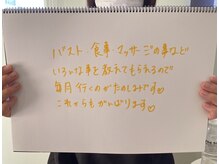 バスト・食事・マッサージの事など
いろいろな事を教えてもらえるので
毎月行くのがたのしみです♡
これからもがんばります♡